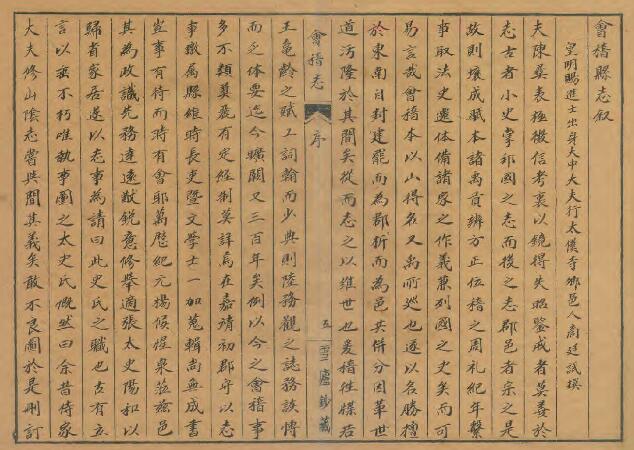 會稽縣志叙
皇明賜進士出身大中大夫行太僕寺卿邑人商廷試撰
夫陳彛表極徵信考衷以鏡得失昭鑒戒者莫善於
志古者小史掌邦國之志而後之志郡邑者宗之是
故則壤成賦本諸禹貢辨方正位稽之周礼紀年繫
事取法史遷体備諸家之作義兼列國之史矣而可
易言哉會稽本以山得名又禹所巡也遂以名勝擅
於東南自封建罷而為郡析而為邑其併分因革世
道汚隆於其間矣從而志之以維世也爰稽徃牒若
會稽志
序
五
雪廬鈔藏
王龜齡之賦工詞翰而少典則陸務觀之誌務該博
而乏体要迄今曠闕又三百年矣例以今之會稽事
多不類奠麗有定經制莫詳焉在嘉靖初郡守以志
事檄屬縣維時長吏暨文學士一加蒐輯尚無成書
豈事有待而時有會耶萬曆紀元楊候惺泉蒞茲邑
其為政識先務達遠猷銳意修舉適張太史陽和以
歸省家居遂以志事為請曰此史氏之職也古有立
言以垂不朽唯執事圖之太史氏慨然曰余昔侍家
大夫修山陰志嘗與聞其義矣敢不良圖於是刪訂